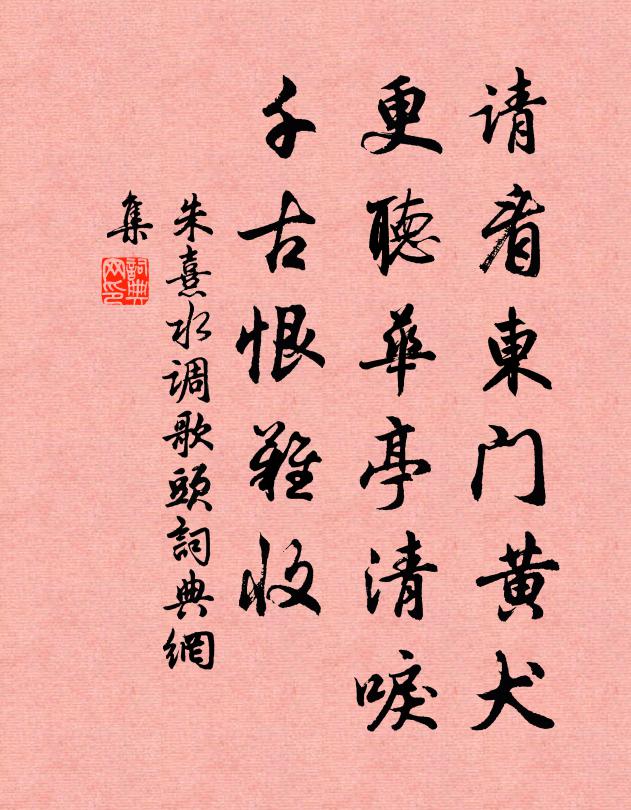 请看東门黄犬
更聽華亭清唳
千古恨難收
朱熹水调歌頭詞典網
集
詞典网印